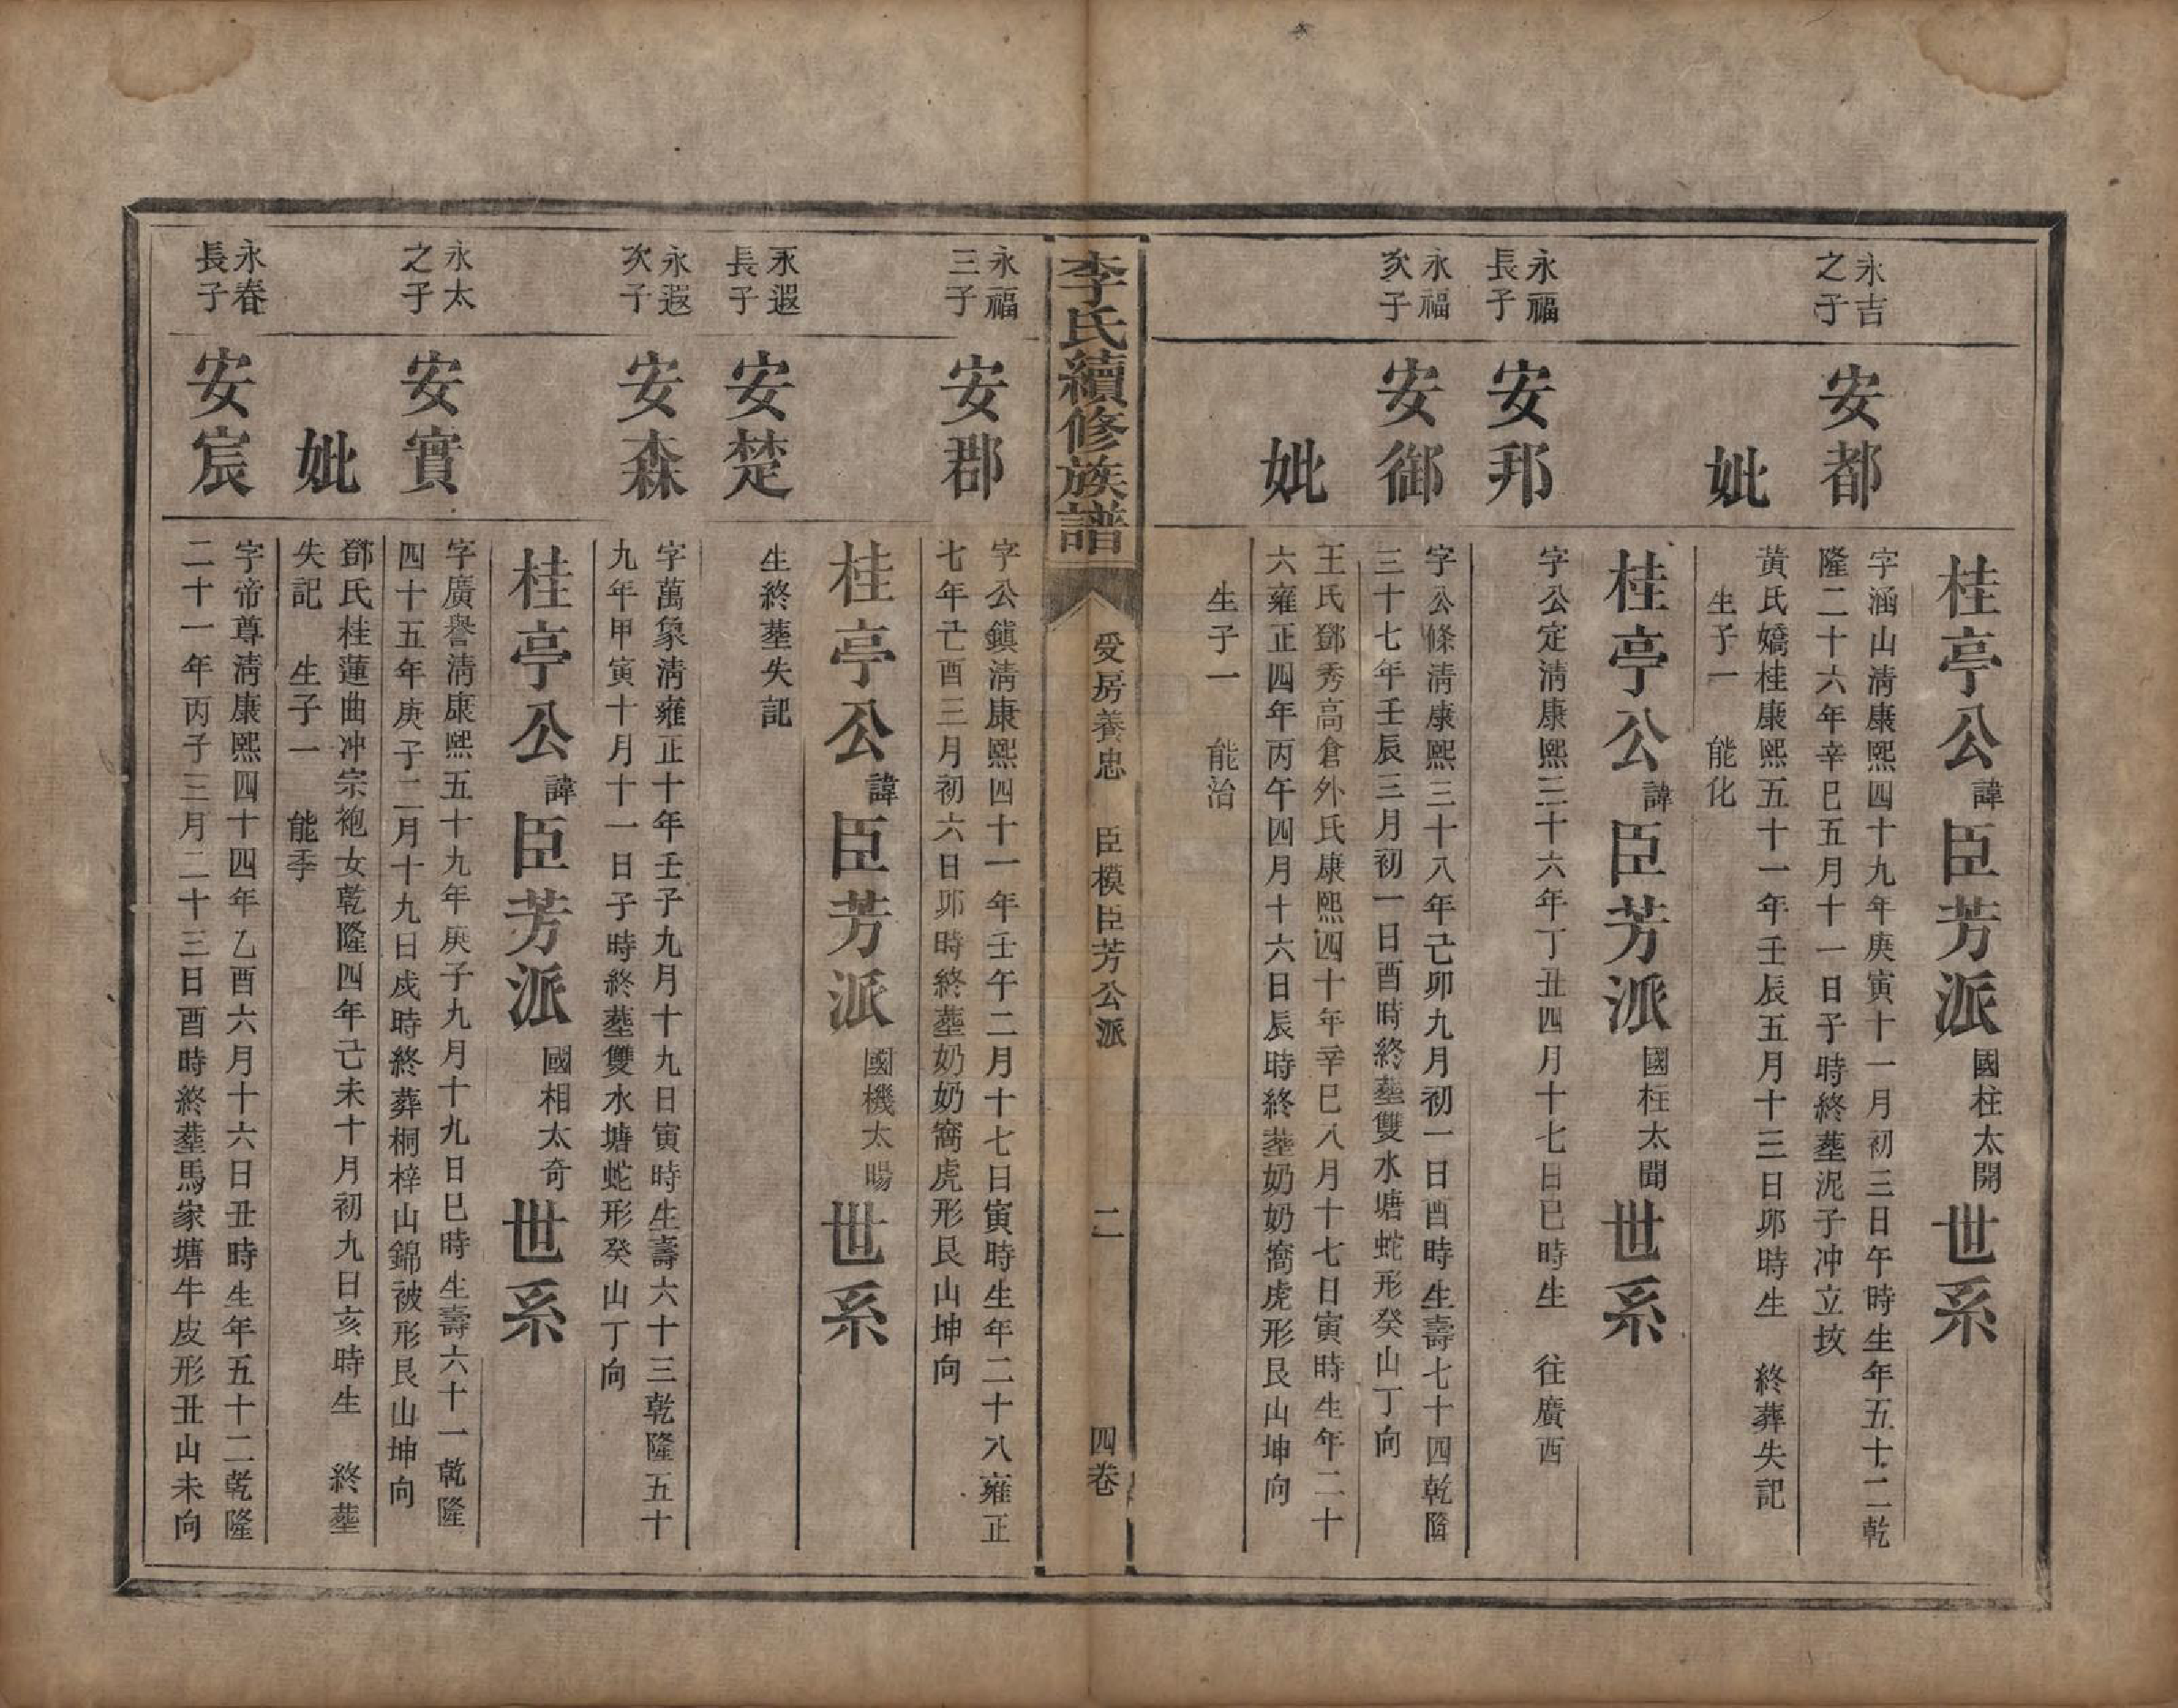 桂亭公諱臣芳派國柱太開世系
永吉
之子
安都
字涵山淸康熙四十九年庚寅十一月初三日午時生年五十二乾
隆二十六年辛巳五月十一日子時終塟泥子冲立㘭
妣
黃氏嬌桂康熙五十一年壬辰五月十三日卯時生　終葬失記
生子一　能化
桂亭公諱臣芳派國柱太聞世系
永福
長子
安邦
字公定淸康熙三十六年丁丑四月十七日巳時生　往廣西
永福
次子
安御
字公條淸康熙三十八年己卯九月初一日酉時生壽七十四乾隆
三十七年壬辰三月初一日酉時終塟雙水塘蛇形癸山丁向
妣
王氏鄧秀高倉外氏康熙四十年辛巳八月十七日寅時生年二十
六雍正四年丙午四月十六日辰時終塟奶奶窩虎形艮山坤向
生子一　能治
李氏續修族譜
受房養忠　臣模臣芳公派
二
四卷
永福
三子
安郡
字公鎭淸康熙四十一年壬午二月十七日寅時生年二十八雍正
七年己酉三月初六日卯時終塟奶奶窩虎形艮山坤向
桂亭公諱臣芳派國機太暘世系
永遐
長子
安楚
生終塟失記
永遐
次子
安森
字萬象淸雍正十年壬子九月十九日寅時生壽六十三乾隆五十
九年甲寅十月十一日子時終塟雙水塘蛇形癸山丁向
桂亭公諱臣芳派國相太奇世系
永太
之子
安實
字廣譽淸康熙五十九年庚子九月十九日巳時生壽六十一乾隆
四十五年庚子二月十九日戌時終葬桐梓山錦被形艮山坤向
妣
鄧氏桂蓮曲冲宗袍女乾隆四年己未十月初九日亥時生　終塟
失記　生子一　能季
永春
長子
安宸
字帝尊淸康熙四十四年乙酉六月十六日丑時生年五十二乾隆
二十一年丙子三月二十三日酉時終塟馬家塘牛皮形丑山未向